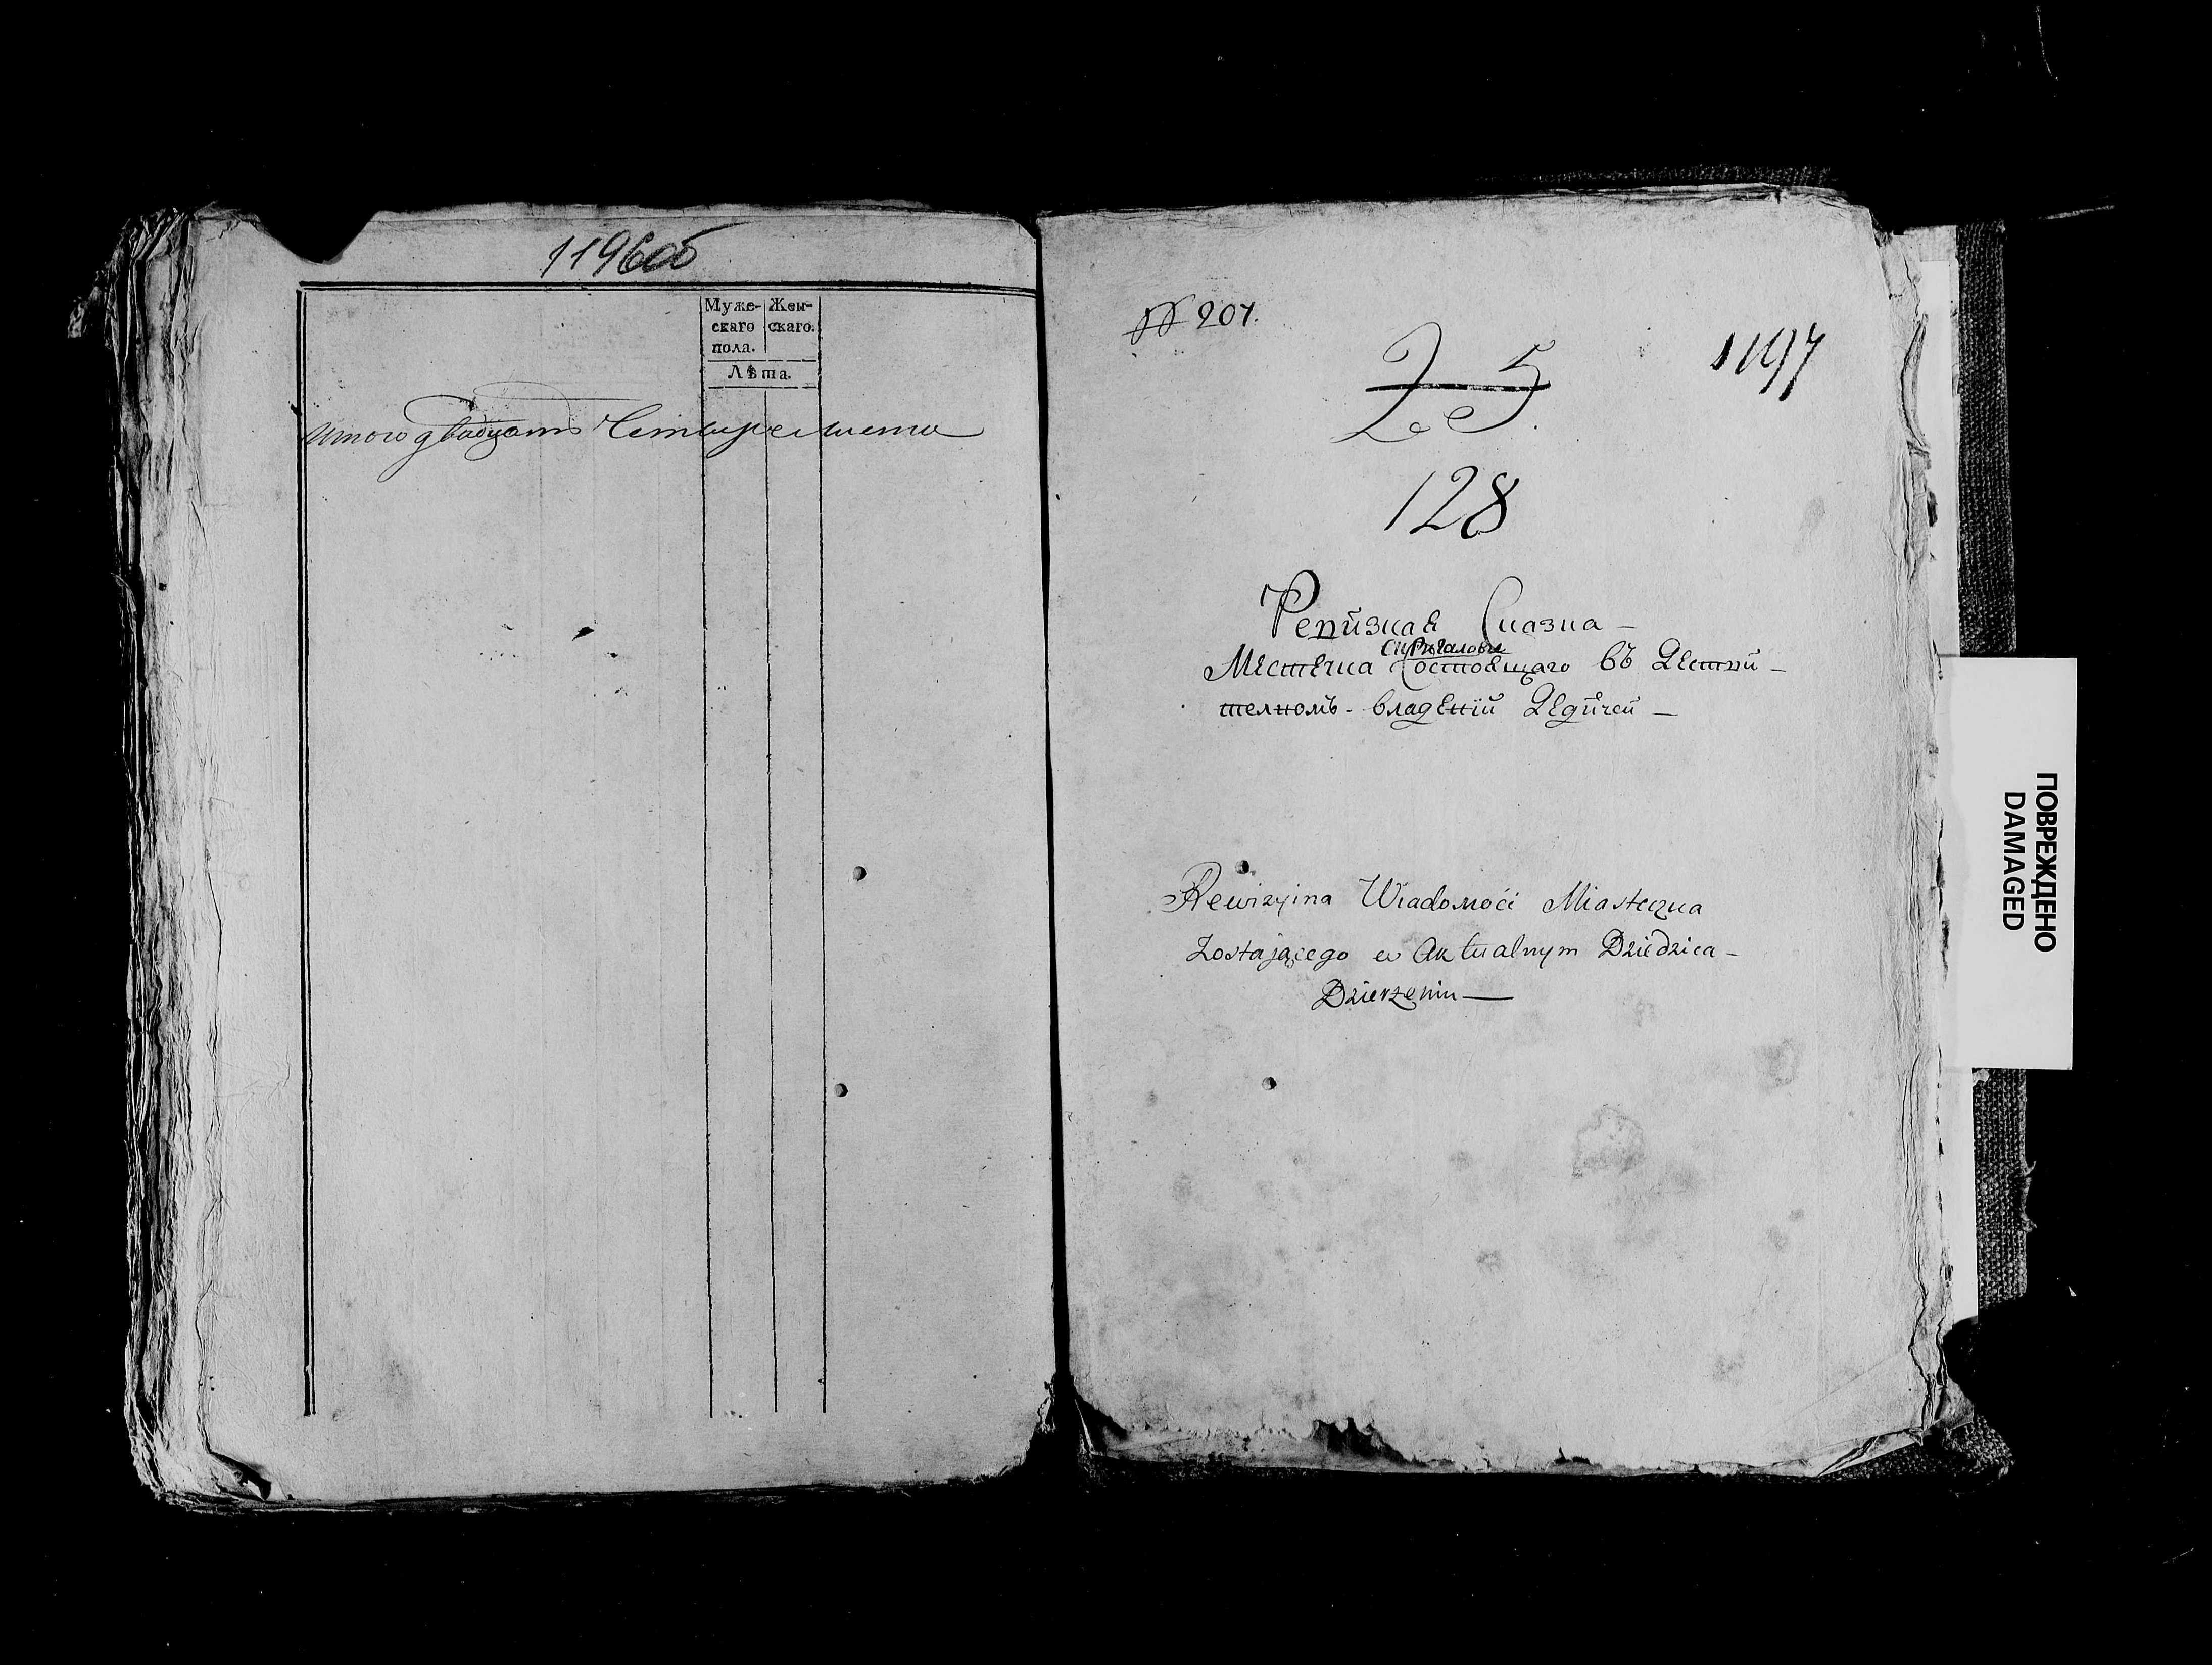 1196об
Муже- Жен-
скаго скаго.
пола.
Лѣта.
Итого двадцать Четыре листа
№ 207.
1197
25
128
Ревизкая Сказка –
Местечка Состоящаго въ Дестви –
телномъ - владении Дедичей –
Rewizyina Wiadomości Miasteczka
Zostającego w Aktualnym Dziedzica –
Dzierzeniu —
ПОВРЕЖДЕНО
DAMAGED